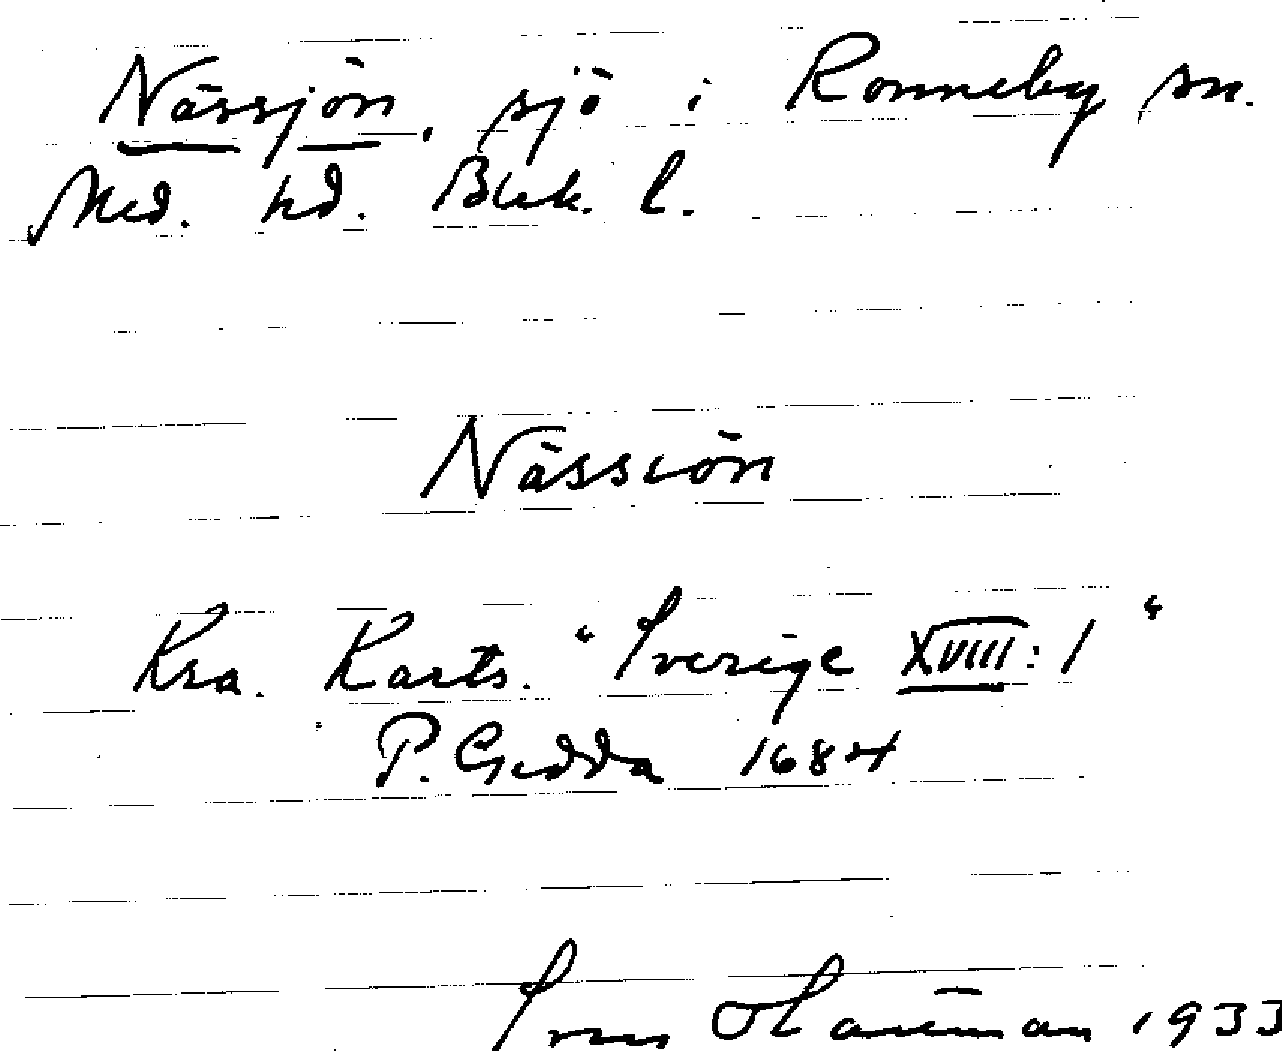 Nässjön, sjö i Ronneby sn.
Med. hd. Blek. l.
Nässiön
Kra. Karts. "Sverige XVIII:1"
P. Gedda 1684
1933